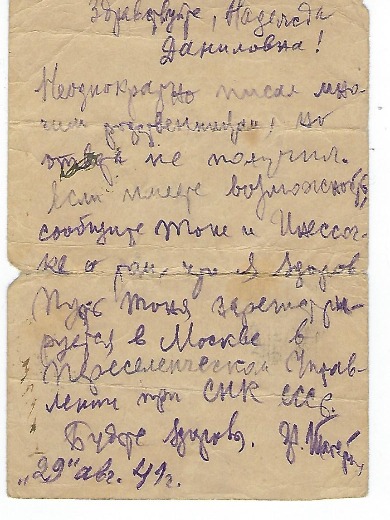 Здравствуйте, Надежда
Даниловна!
Неоднократно писал мно-
гим родственникам, но
ответа не получил.
Если имеете возможность,
сообщите Тоне и Инессоч-
ке о том, что я здоров
Пусть Тоня зарегистри-
руется в Москве в
Переселенческом Управ-
лении при СНК СССР.
Будьте здоровы.
„29" авг. 41г.